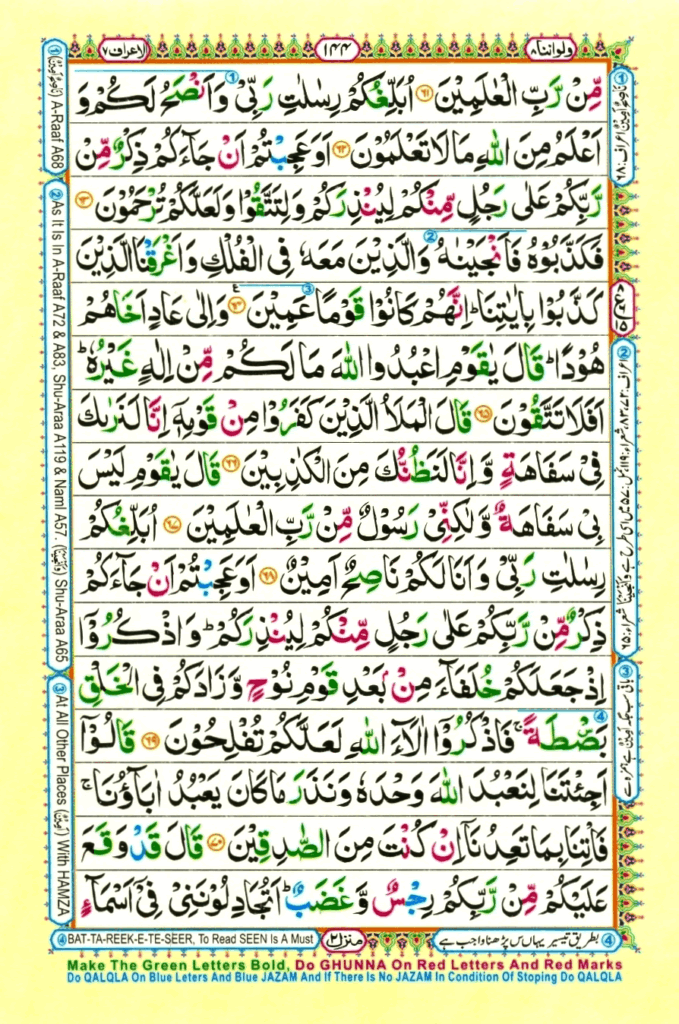 ولواننا ٨
١٤٤
الاعراف ٧
مِّنْ رَّبِّ الْعٰلَمِيْنَ ٦١ اُبَلِّغُكُمْ رِسٰلٰتِ رَبِّىْ وَاَنْصَحُ لَكُمْ وَ
اَعْلَمُ مِنَ اللّٰهِ مَا لَا تَعْلَمُوْنَ ٦٢ اَوَعَجِبْتُمْ اَنْ جَآءَكُمْ ذِكْرٌ مِّنْ
رَّبِّكُمْ عَلٰى رَجُلٍ مِّنْكُمْ لِيُنْذِرَكُمْ وَلِتَتَّقُوْا وَلَعَلَّكُمْ تُرْحَمُوْنَ ٦٣
فَكَذَّبُوْهُ فَاَنْجَيْنٰهُ وَالَّذِيْنَ مَعَهٗ فِى الْفُلْكِ وَاَغْرَقْنَا الَّذِيْنَ
كَذَّبُوْا بِاٰيٰتِنَا ؕ اِنَّهُمْ كَانُوْا قَوْمًا عَمِيْنَ ٦٤ وَاِلٰى عَادٍ اَخَاهُمْ
هُوْدًا ؕ قَالَ يٰقَوْمِ اعْبُدُوا اللّٰهَ مَا لَكُمْ مِّنْ اِلٰهٍ غَيْرُهٗ ؕ
اَفَلَا تَتَّقُوْنَ ٦٥ قَالَ الْمَلَاُ الَّذِيْنَ كَفَرُوْا مِنْ قَوْمِهٖٓ اِنَّا لَنَرٰىكَ
فِىْ سَفَاهَةٍ وَّاِنَّا لَنَظُنُّكَ مِنَ الْكٰذِبِيْنَ ٦٦ قَالَ يٰقَوْمِ لَيْسَ
بِىْ سَفَاهَةٌ وَّلٰكِنِّىْ رَسُوْلٌ مِّنْ رَّبِّ الْعٰلَمِيْنَ ٦٧ اُبَلِّغُكُمْ
رِسٰلٰتِ رَبِّىْ وَاَنَا لَكُمْ نَاصِحٌ اَمِيْنٌ ٦٨ اَوَعَجِبْتُمْ اَنْ جَآءَكُمْ
ذِكْرٌ مِّنْ رَّبِّكُمْ عَلٰى رَجُلٍ مِّنْكُمْ لِيُنْذِرَكُمْ ؕ وَاذْكُرُوْٓا
اِذْ جَعَلَكُمْ خُلَفَآءَ مِنْۢ بَعْدِ قَوْمِ نُوْحٍ وَّزَادَكُمْ فِى الْخَلْقِ
بَصْۜطَةً ۚ فَاذْكُرُوْٓا اٰلَآءَ اللّٰهِ لَعَلَّكُمْ تُفْلِحُوْنَ ٦٩ قَالُوْٓا
اَجِئْتَنَا لِنَعْبُدَ اللّٰهَ وَحْدَهٗ وَنَذَرَ مَا كَانَ يَعْبُدُ اٰبَآؤُنَا ۚ
فَاْتِنَا بِمَا تَعِدُنَآ اِنْ كُنْتَ مِنَ الصّٰدِقِيْنَ ٧٠ قَالَ قَدْ وَقَعَ
عَلَيْكُمْ مِّنْ رَّبِّكُمْ رِجْسٌ وَّغَضَبٌ ؕ اَتُجَادِلُوْنَنِىْ فِىْٓ اَسْمَآءٍ
① (نَاصِحٌ اَمِيْنٌ) A-Raaf A68
② As It Is In A-Raaf A72 & A83, Shu-Araa A119 & Naml A57. (وَاَنْجَيْنَا) Shu-Araa A65
③ At All Other Places (اٰمِيْنَ) With HAMZA
① نَاصِحٌ اَمِيْنٌ اعراف: ٦٨
④ بطریق تیسیر یہاں س پڑھنا واجب ہے
منزل ٢
④ BAT-TA-REEK-E-TE-SEER, To Read SEEN Is A Must
Make The Green Letters Bold, Do GHUNNA On Red Letters And Red Marks
Do QALQLA On Blue Leters And Blue JAZAM And If There Is No JAZAM In Condition Of Stoping Do QALQLA